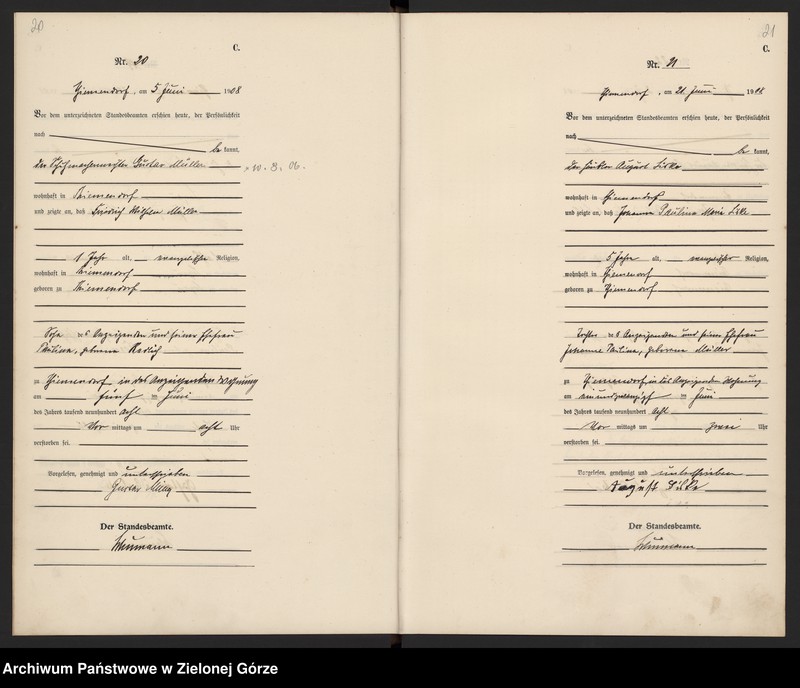 20
C.
Nr. 20
am 5. Juni 1908
Vor dem unterzeichneten Standesbeamten erschien heute, der Persönlichkeit
nach
be kannt,
der Gustav Müller
* 10. 8. 06.
wohnhaft in
und zeigte an, daß Friedrich Wilhelm Müller
1 Jahr alt, evangelischer Religion,
wohnhaft in
geboren zu
Sohn des Anzeigenden und seiner Ehefrau
Pauline, geborene
zu in des Anzeigenden Wohnung
am fünf ten Juni
des Jahres tausend neunhundert acht
Vor mittags um acht Uhr
verstorben sei.
Vorgelesen, genehmigt und unterschrieben
Gustav
Der Standesbeamte.
21
C.
Nr. 21
am 21. Juni 1908
Vor dem unterzeichneten Standesbeamten erschien heute, der Persönlichkeit
nach
be kannt,
der August
wohnhaft in
und zeigte an, daß Johanna Pauline
5 Jahre alt, evangelischer Religion,
wohnhaft in
geboren zu
Tochter des Anzeigenden und seiner Ehefrau
Johanne Pauline, geborene Müller
zu in des Anzeigenden Wohnung
am einundzwanzigsten Juni
des Jahres tausend neunhundert acht
Vor mittags um zwei Uhr
verstorben sei.
Vorgelesen, genehmigt und unterschrieben
August
Der Standesbeamte.
Archiwum Państwowe w Zielonej Górze